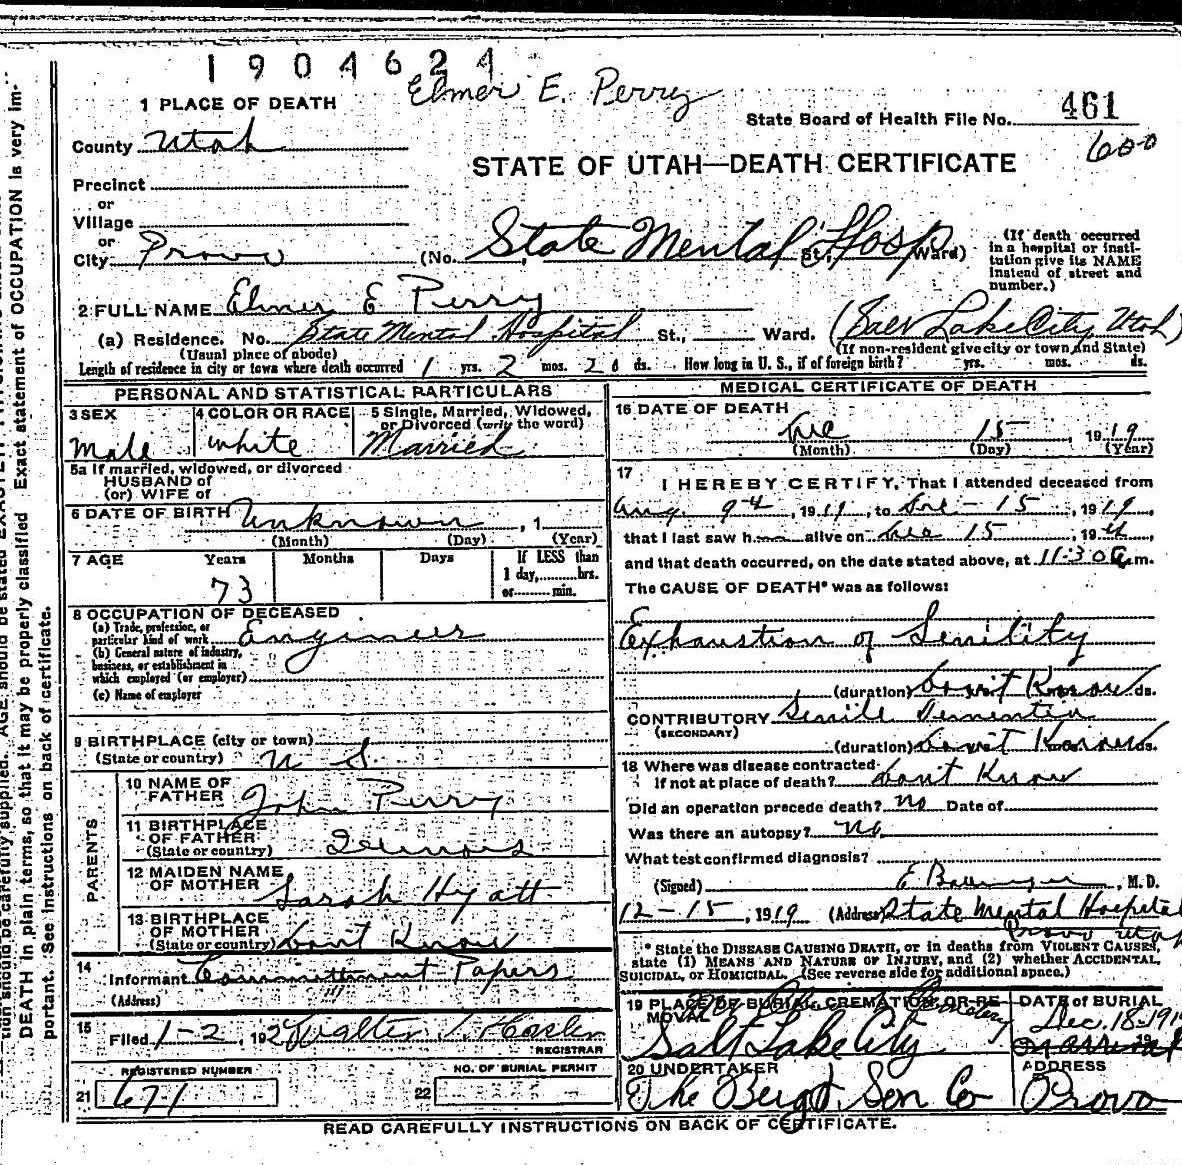 1904624
Elmer E. Perry
1 PLACE OF DEATH
State Board of Health File No. 461
600
County Utah
STATE OF UTAH—DEATH CERTIFICATE
Precinct
or
Village
or
City Provo (No. State Mental Hosp St., Ward)
(If death occurred in a hospital or institution give its NAME instead of street and number.)
2 FULL NAME Elmer E Perry
(a) Residence. No. State Mental Hospital St., Ward. (Salt Lake City Utah)
(Usual place of abode) (If non-resident give city or town and State)
Length of residence in city or town where death occurred 1 yrs. 2 mos. 2 ds. How long in U. S., if of foreign birth? yrs. mos. ds.
PERSONAL AND STATISTICAL PARTICULARS
3 SEX 4 COLOR OR RACE 5 Single, Married, Widowed, or Divorced (write the word)
Male white Married
5a If married, widowed, or divorced
HUSBAND of
(or) WIFE of
6 DATE OF BIRTH Unknown, 1
(Month) (Day) (Year)
7 AGE Years Months Days If LESS than 1 day, hrs. or min.
73
8 OCCUPATION OF DECEASED
(a) Trade, profession, or particular kind of work Engineer
(b) General nature of industry, business, or establishment in which employed (or employer)
(c) Name of employer
9 BIRTHPLACE (city or town)
(State or country) U S
PARENTS
10 NAME OF FATHER John Perry
11 BIRTHPLACE OF FATHER (State or country) Illinois
12 MAIDEN NAME OF MOTHER Sarah Hyatt
13 BIRTHPLACE OF MOTHER (State or country) dont Know
14 Informant Committment Papers
(Address)
15 Filed 1-2, 192 Walter
REGISTRAR
REGISTERED NUMBER NO. OF BURIAL PERMIT
21 671 22
MEDICAL CERTIFICATE OF DEATH
16 DATE OF DEATH
Dec 15, 1919
(Month) (Day) (Year)
17 I HEREBY CERTIFY, That I attended deceased from
Aug. 9-, 1919, to Dec - 15, 1919,
that I last saw him alive on Dec 15, 19
and that death occurred, on the date stated above, at 11:30 a.m.
The CAUSE OF DEATH* was as follows:
Exhaustion of Senility
(duration) dont Know ds.
CONTRIBUTORY Senile Dementia
(SECONDARY)
(duration) dont Know ds.
18 Where was disease contracted
If not at place of death? dont Know
Did an operation precede death? no Date of
Was there an autopsy? No
What test confirmed diagnosis?
(Signed) E, M. D.
12-15, 1919 (Address) State Mental Hospital
Provo Utah
* State the DISEASE CAUSING DEATH, or in deaths from VIOLENT CAUSES,
state (1) MEANS AND NATURE OF INJURY, and (2) whether ACCIDENTAL,
SUICIDAL, or HOMICIDAL. (See reverse side for additional space.)
19 PLACE OF BURIAL, CREMATION, OR REMOVAL Cemetery
Salt Lake City
DATE of BURIAL
Dec. 18-1919
20 UNDERTAKER
The Berg & Son Co
ADDRESS
Provo
READ CAREFULLY INSTRUCTIONS ON BACK OF CERTIFICATE.
DEATH in plain terms, so that it may be properly classified. Exact statement of OCCUPATION is very im-
portant. See instructions on back of certificate.